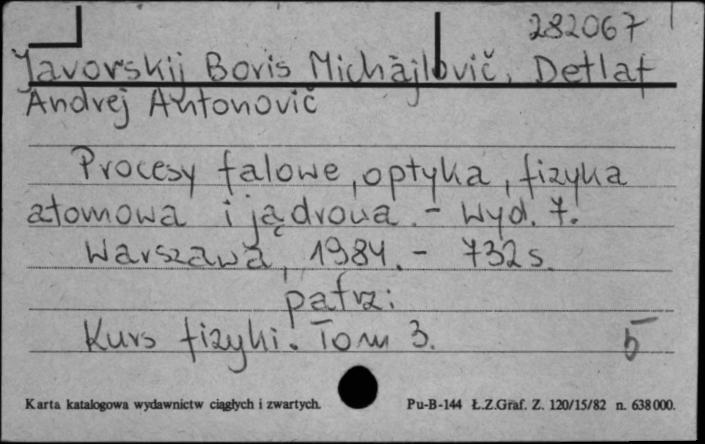 282067
Javorskij Boris Michajlovič, Detlaf
Andrej Antonovič
Procesy falowe, optyka, fizyka
atomowa i jądrowa. - Wyd. 7.
Warszawa, 1984. - 732 s.
patrz:
Kurs fizyki. Tom 3.
b
Karta katalogowa wydawnictw ciągłych i zwartych.
Pu-B-144 Ł.Z.Graf. Z. 120/15/82 n. 638000.